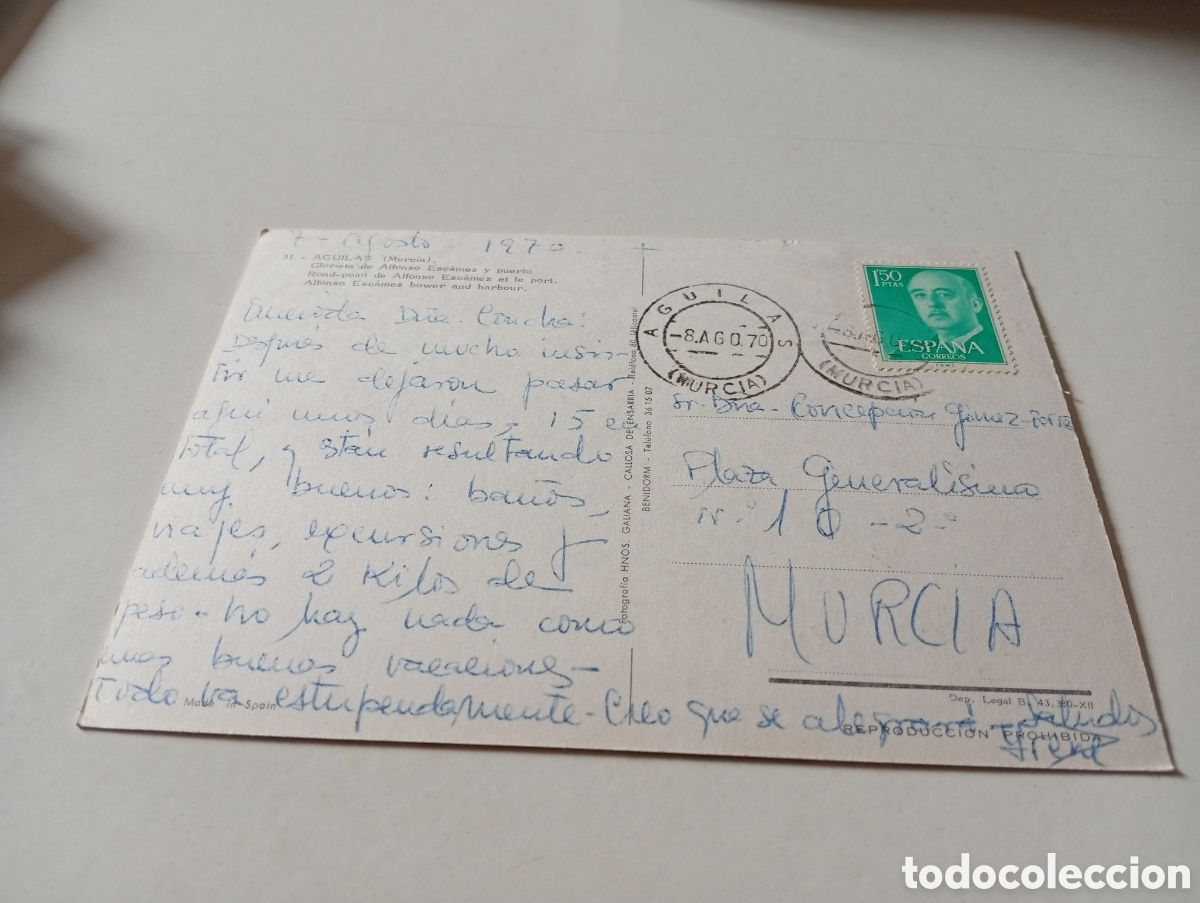 7 - agosto - 1970.
31. - AGUILAS (Murcia).
Glorieta de Alfonso Escámez y puerto.
Rond-point de Alfonso Escámez et le port.
Alfonso Escámez bower and harbour.
Querida Dña. Concha:
Después de mucho insis-
tir me dejaron pasar
aquí unos días, 15 en
total, y están resultando
muy buenos: baños,
viajes, excursiones y
además 2 kilos de
peso. No hay nada como
unas buenas vacaciones-
Todo va estupendamente- Creo que se alegrará - Saludos
Irene
Made in Spain
Fotografía HNOS. GALIANA - CALLOSA DE ENSARRIA - Teléfono 80 (Alicante)
BENIDORM - Teléfono 36 15 07
AGUILAS
-8.AGO.70
(MURCIA)
-8.AGO
(MURCIA)
1'50
PTAS
ESPAÑA
CORREOS
Sr. Dña. Concepción Gómez-
Plaza Generalísimo
Nº 10 - 2º
MURCIA
Dep. Legal B. 43.380-XII
REPRODUCCION PROHIBIDA
todocoleccion